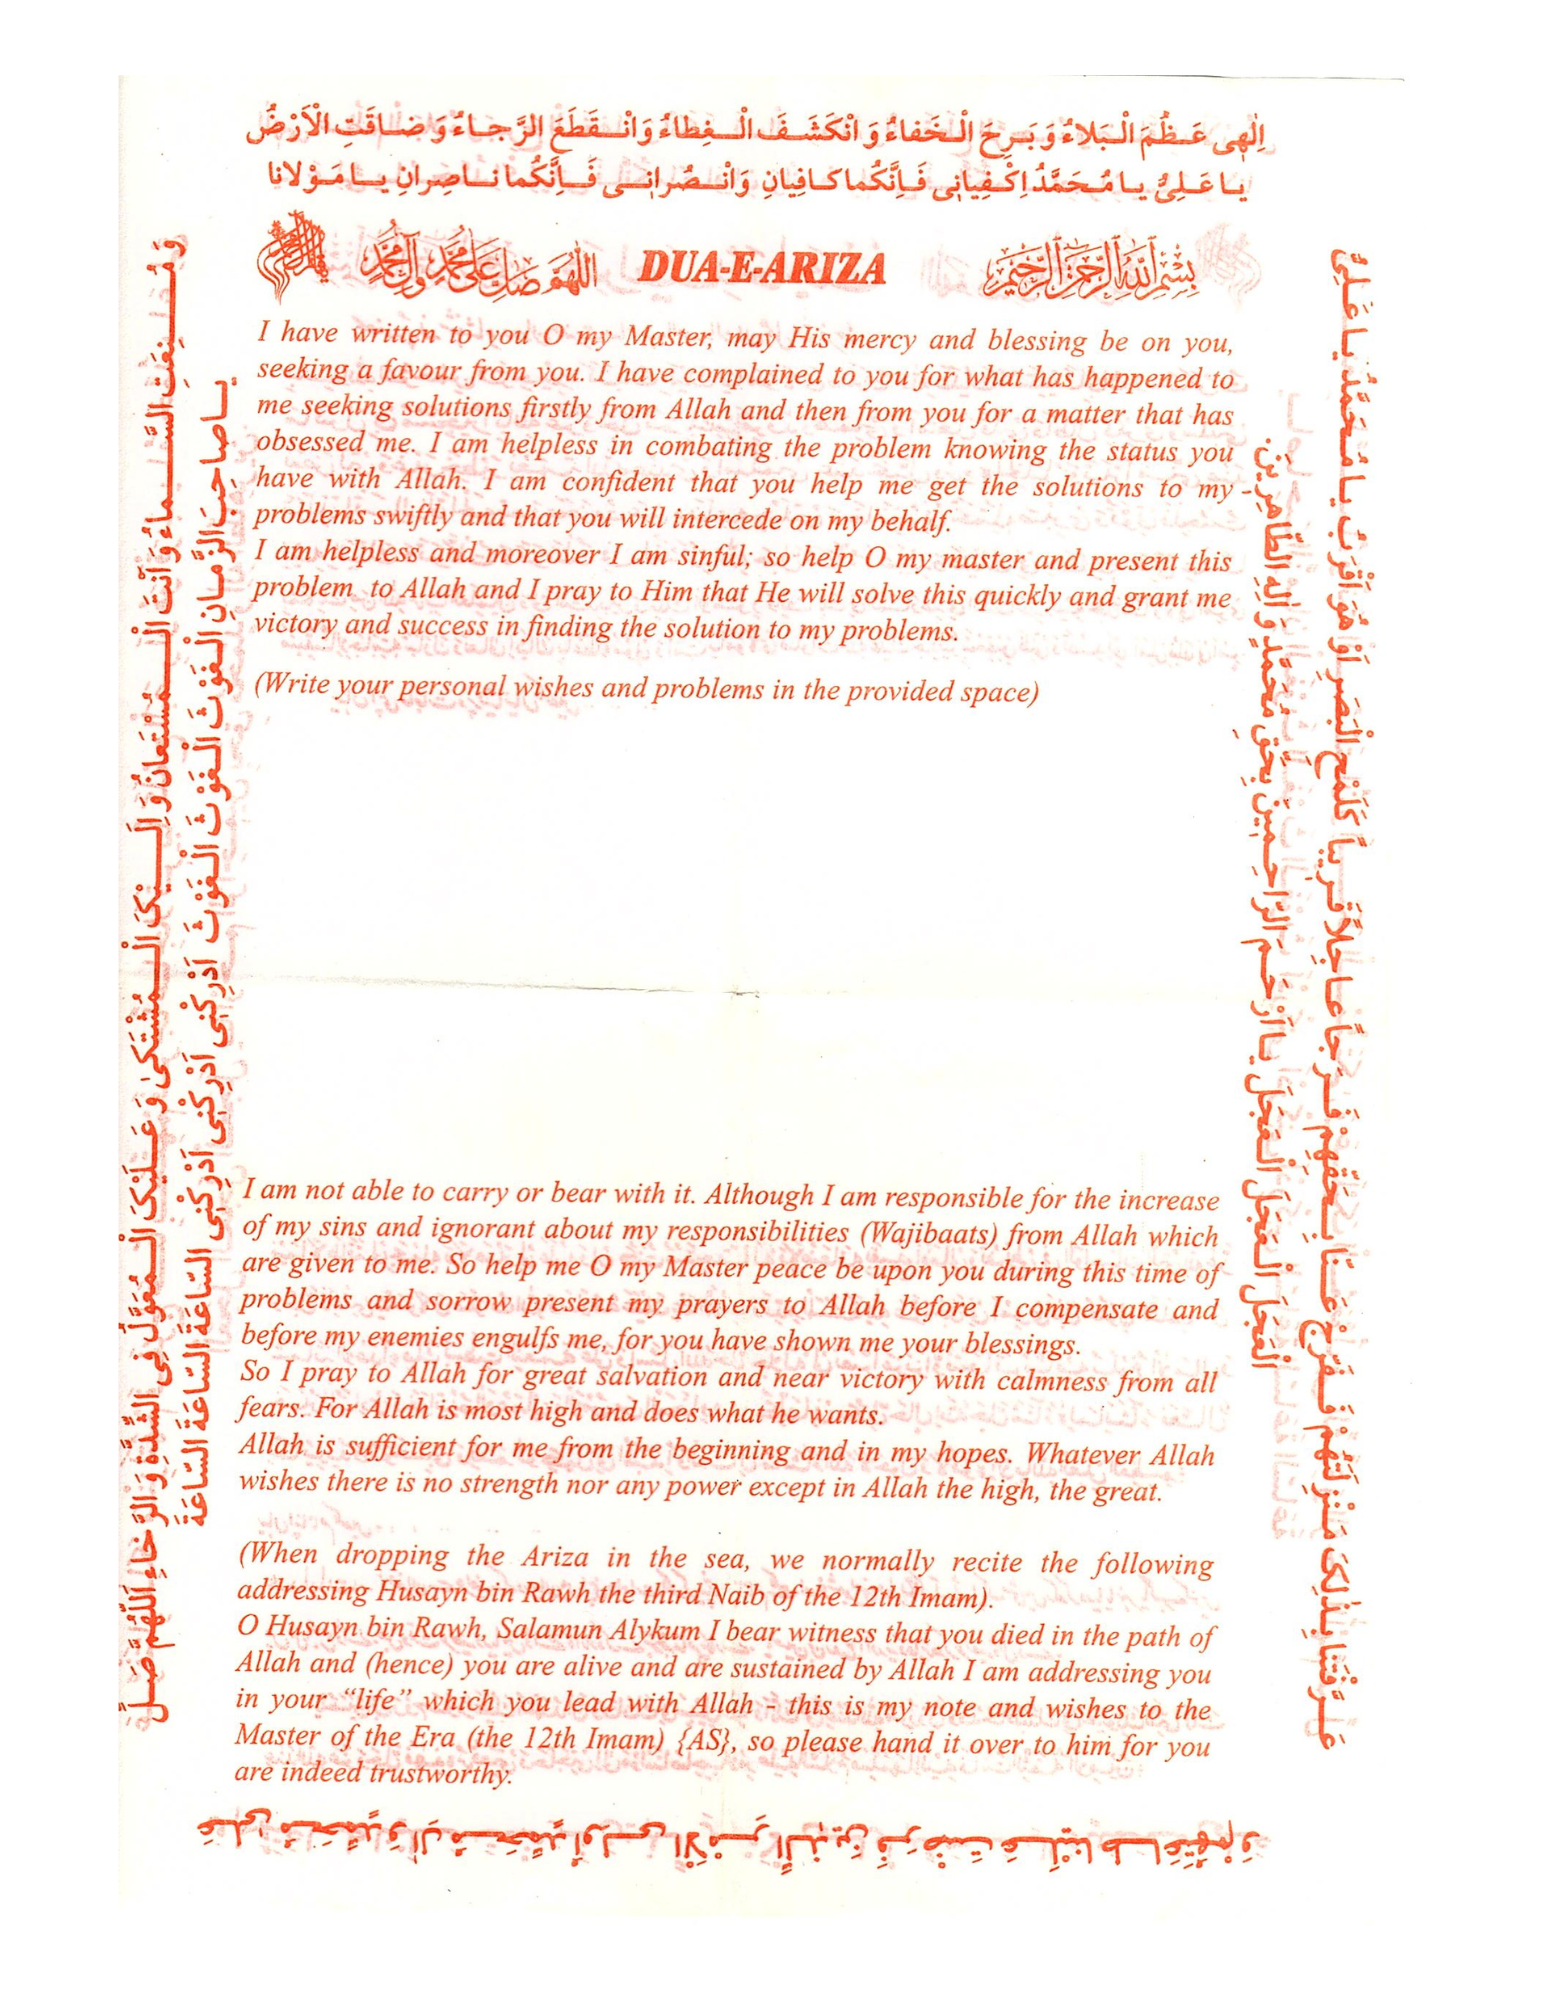 اِلٰهِى عَـظُمَ الْـبَلاءُ وَ بَـرِحَ الْـخَفاءُ وَ انْكَشَـفَ الْـغِطاءُ وَانْـقَطَعَ الرَّجـاءُ وَ ضـاقَتِ الْاَرْضُ
يـا عَـلِىُّ يـا مُـحَمَّدُ اِكْـفِيانِى فَـاِنَّكُما كـافِيانِ وَانْـصُرانِـى فَـاِنَّكُما نـاصِرانِ يـا مَـوْلانا
اللّٰهُمَّ صَلِّ عَلىٰ مُحَمَّدٍ وَآلِ مُحَمَّدٍ
DUA-E-ARIZA
بِسْمِ اللّٰهِ الرَّحْمٰنِ الرَّحِيْمِ
I have written to you O my Master, may His mercy and blessing be on you,
seeking a favour from you. I have complained to you for what has happened to
me seeking solutions firstly from Allah and then from you for a matter that has
obsessed me. I am helpless in combating the problem knowing the status you
have with Allah. I am confident that you help me get the solutions to my
problems swiftly and that you will intercede on my behalf.
I am helpless and moreover I am sinful; so help O my master and present this
problem to Allah and I pray to Him that He will solve this quickly and grant me
victory and success in finding the solution to my problems.
(Write your personal wishes and problems in the provided space)
I am not able to carry or bear with it. Although I am responsible for the increase
of my sins and ignorant about my responsibilities (Wajibaats) from Allah which
are given to me. So help me O my Master peace be upon you during this time of
problems and sorrow present my prayers to Allah before I compensate and
before my enemies engulfs me, for you have shown me your blessings.
So I pray to Allah for great salvation and near victory with calmness from all
fears. For Allah is most high and does what he wants.
Allah is sufficient for me from the beginning and in my hopes. Whatever Allah
wishes there is no strength nor any power except in Allah the high, the great.
(When dropping the Ariza in the sea, we normally recite the following
addressing Husayn bin Rawh the third Naib of the 12th Imam).
O Husayn bin Rawh, Salamun Alykum I bear witness that you died in the path of
Allah and (hence) you are alive and are sustained by Allah I am addressing you
in your “life” which you lead with Allah - this is my note and wishes to the
Master of the Era (the 12th Imam) {AS}, so please hand it over to him for you
are indeed trustworthy.
وَمُـنِعَتِ السَّـماءُ وَ اَنْتَ الْـمُسْتَعانُ وَ اِلَـيْكَ الْـمُشْتَكىٰ وَ عَـلَيْكَ الْـمُعَوَّلُ فِى الشِّدَّةِ وَ الرَّخاءِ اَللّٰهُمَّ صَـلِّ
عَـلىٰ مُـحَمَّدٍ وَ الِ مُـحَمَّدٍ اُولِـى الْاَمْـرِ الَّـذِينَ فَـرَضْتَ عَـلَيْنا طـاعَتَهُمْ وَ
عَـرَّفْتَنا بِـذٰلِكَ مَـنْزِلَتَهُمْ فَـفَرِّجْ عَـنّا بِـحَقِّهِمْ فَـرَجاً عـاجِلاً قَـرِيباً كَلَمْحِ الْبَصَرِ اَوْ هُوَ اَقْرَبُ يا مُـحَمَّدُ يـا عَـلِىُّ
يـا صاحِبَ الزَّمانِ الْغَوْثَ الْغَوْثَ الْغَوْثَ اَدْرِكْنِى اَدْرِكْنِى اَدْرِكْنِى السّاعَةَ السّاعَةَ السّاعَةَ
الْعَجَلَ الْـعَجَلَ الْـعَجَلَ يـا اَرْحَـمَ الرّاحِـمِينَ بِحَقِّ مُحَمَّدٍ وَ اٰلِهِ الطّاهِرِينَ.